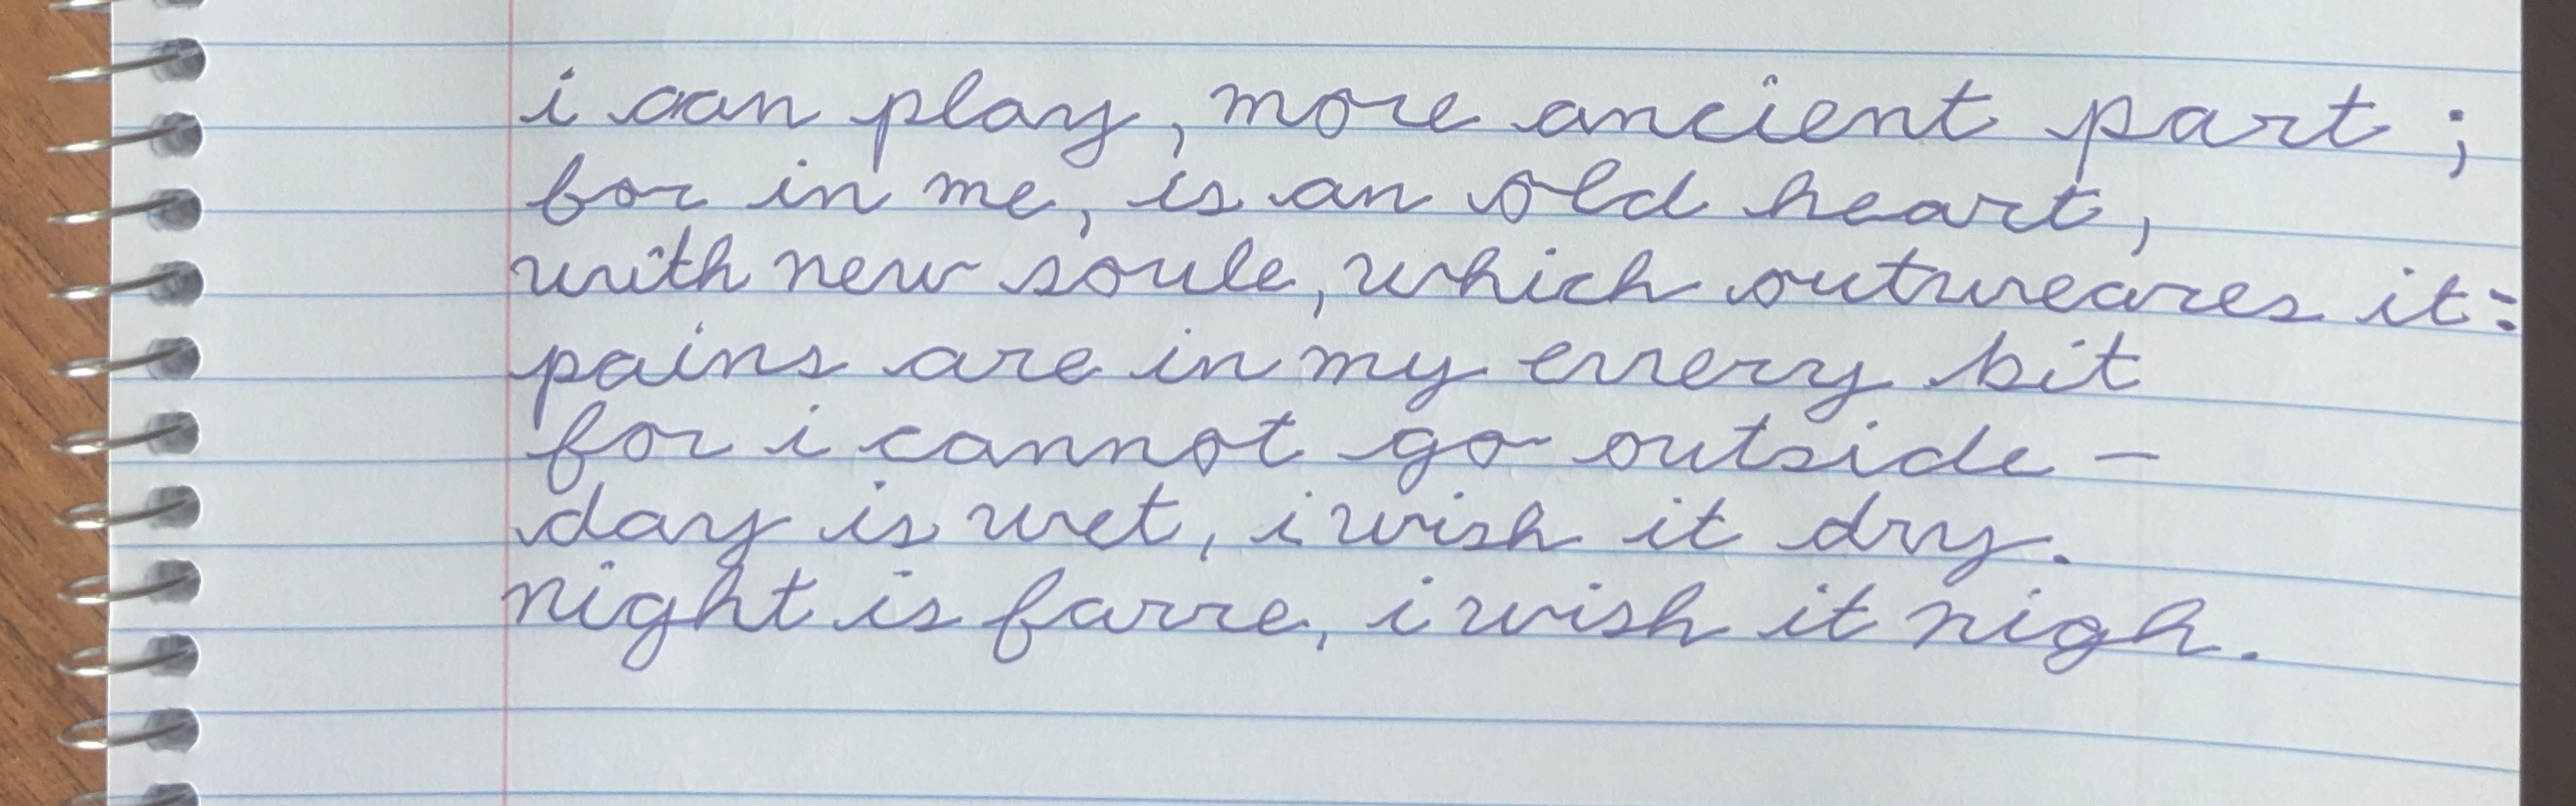 i can play, more ancient part;
for in me, is an old heart,
with new soule, which outweares it:
pains are in my every bit
for i cannot go outside –
day is wet, i wish it dry.
night is farre, i wish it nigh.